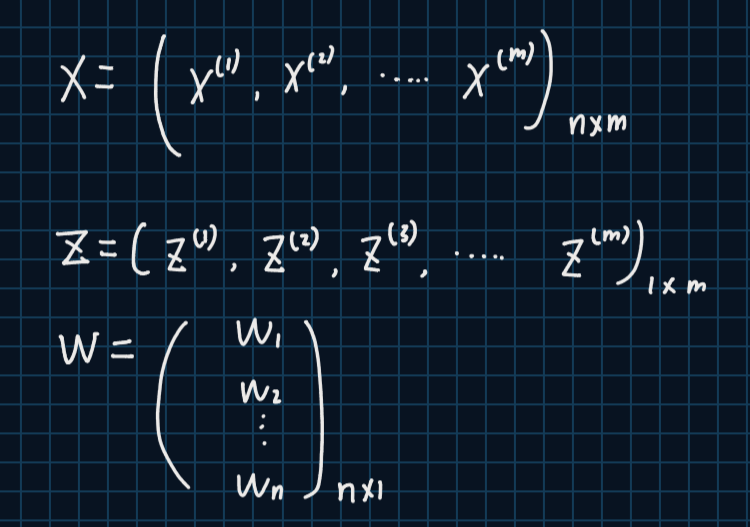 X = ( X^(1), X^(2), ..... X^(m) )_n×m
Z = ( Z^(1), Z^(2), Z^(3), ..... Z^(m) )_1×m
W = ( W_1
W_2
⋮
W_n )_n×1